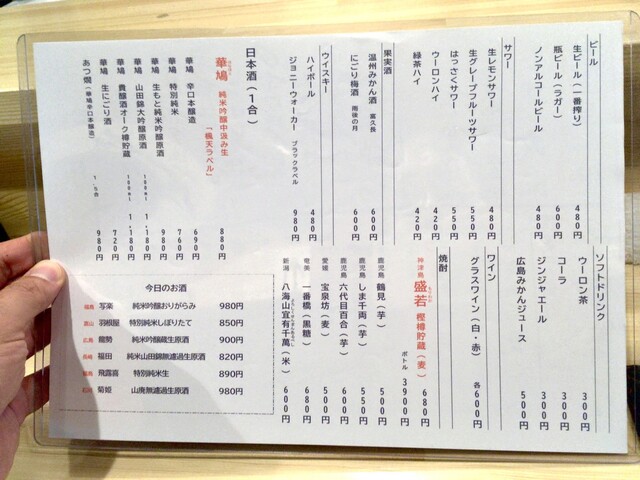 ビール
生ビール（一番搾り） 480円
瓶ビール（ラガー） 600円
ノンアルコールビール 480円
サワー
生レモンサワー 480円
生グレープフルーツサワー 550円
はっさくサワー 550円
ウーロンハイ 420円
緑茶ハイ 420円
果実酒
温州みかん酒 富久長 600円
にごり梅酒 雨後の月 600円
ウイスキー
ハイボール 480円
ジョニーウォーカー ブラックラベル 980円
日本酒（1合）
華鳩 純米吟醸中汲み生「楓天ラベル」 880円
華鳩 辛口本醸造 690円
華鳩 特別純米 760円
華鳩 生もと純米吟醸原酒 980円
華鳩 山田錦大吟醸原酒 100ml 1,180円
華鳩 貴醸酒オーク樽貯蔵 100ml 1,180円
華鳩 生にごり酒 720円
あつ燗（華鳩辛口本醸造） 1.5合 980円
ソフトドリンク
ウーロン茶 300円
コーラ 300円
ジンジャエール 300円
広島みかんジュース 500円
ワイン
グラスワイン（白・赤） 各600円
焼酎
神津島 盛若 樫樽貯蔵（麦） 680円
ボトル 3900円
鹿児島 鶴見（芋） 500円
鹿児島 しま千両（芋） 550円
鹿児島 六代目百合（芋） 600円
愛媛 宝泉坊（麦） 500円
奄美 一番橋（黒糖） 680円
新潟 八海山宜有千萬（米） 600円
今日のお酒
福島 写楽 純米吟醸おりがらみ 980円
富山 羽根屋 特別純米しぼりたて 850円
広島 龍勢 純米吟醸蔵生原酒 900円
長崎 福田 純米山田錦無濾過生原酒 820円
福島 飛露喜 特別純米生 890円
石川 菊姫 山廃無濾過生原酒 980円